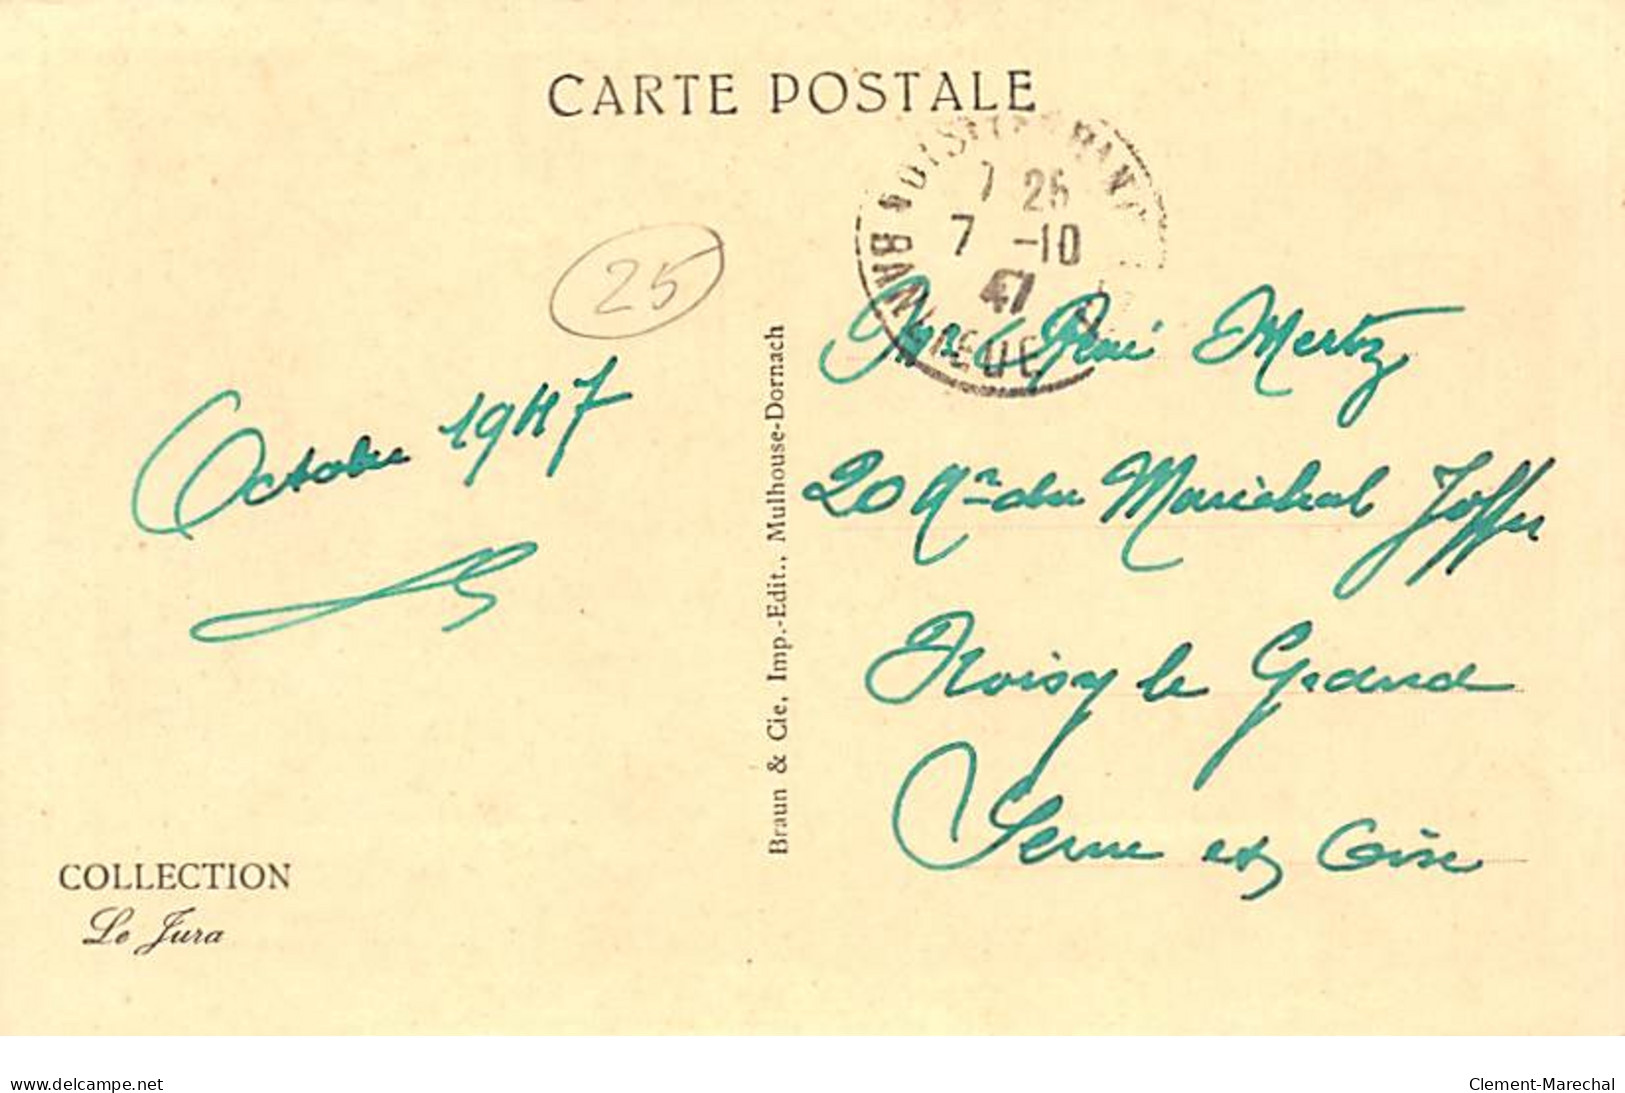 CARTE POSTALE
7 25
7 -10
47
BANLIEUE
25
Octobre 1947
René Mertz
20 Ave du Maréchal Joffre
Noisy le Grand
Seine et Oise
Braun & Cie, Imp.-Edit., Mulhouse-Dornach
COLLECTION
Le Jura
delcampe.net
Clement-Marechal